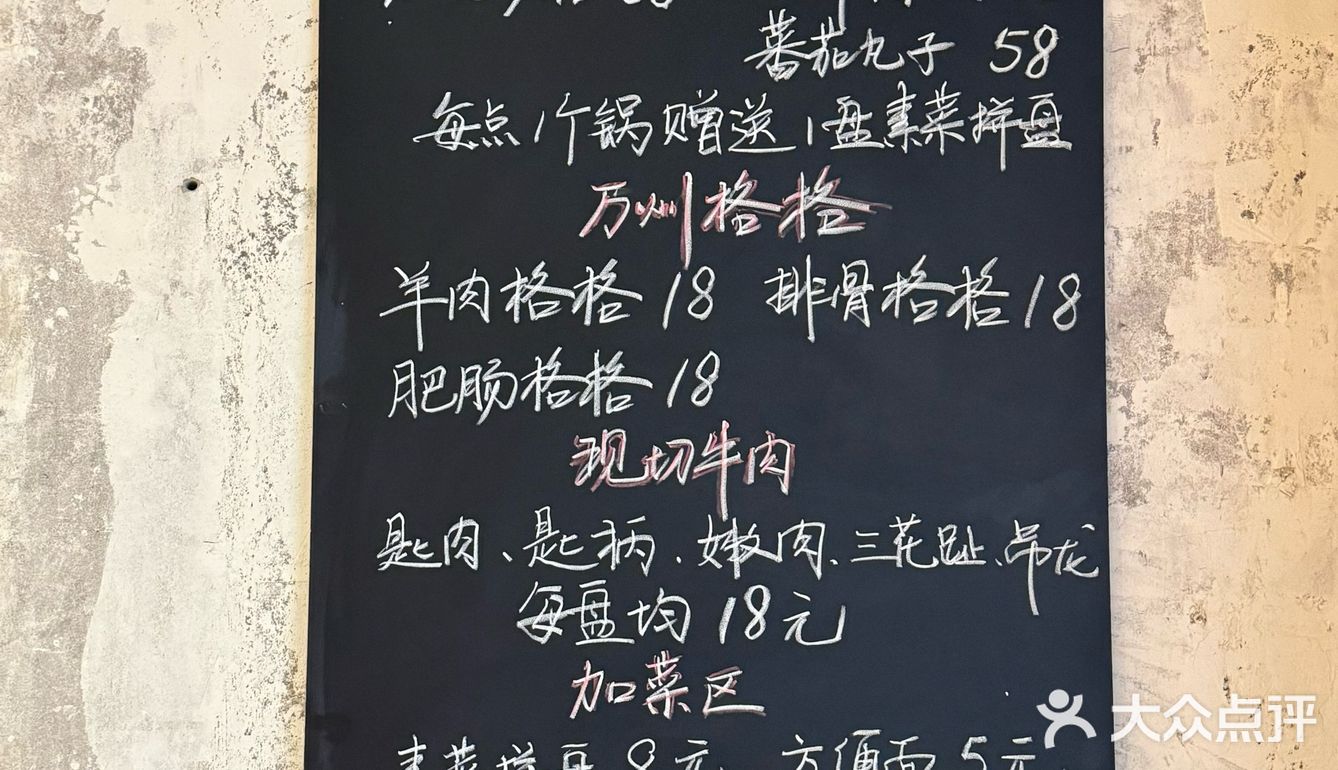 番茄丸子 58
每点1个锅赠送1盘素菜拼盘
万州格格
羊肉格格 18 排骨格格 18
肥肠格格 18
现切牛肉
匙肉、匙柄、嫩肉、三花趾、吊龙
每盘均 18元
加菜区
素菜拼盘 8元 方便面 5元
大众点评